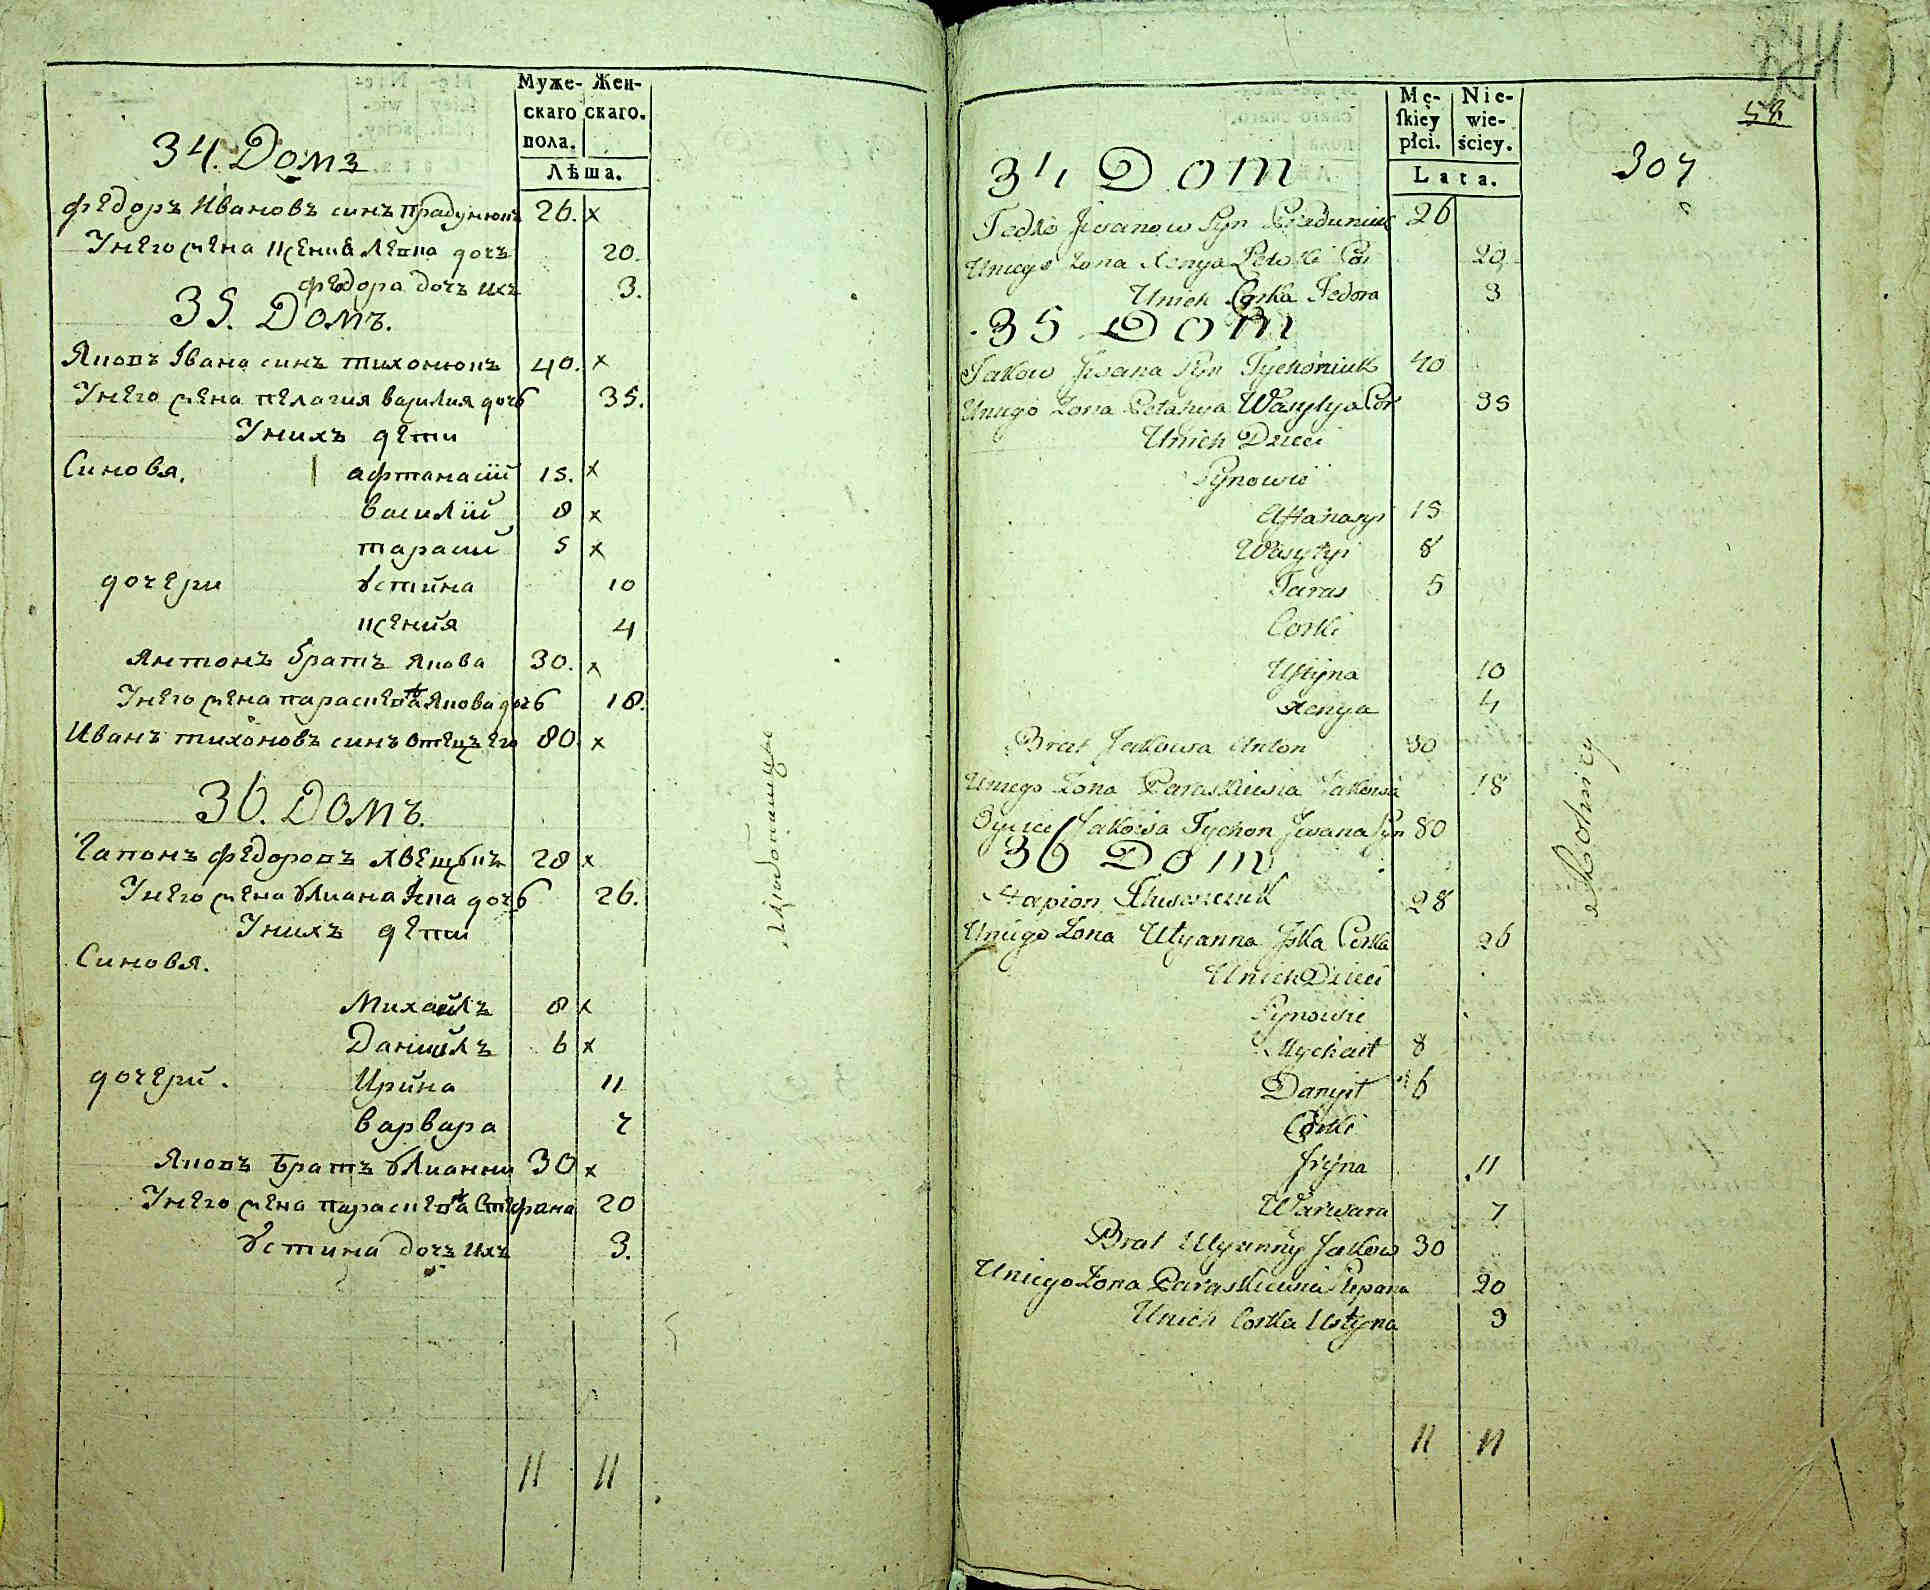 Муже- Жен-
скаго скаго.
пола.
Лѣта.
34. Домъ
Федоръ Ивановъ синъ Прадунюкъ 26. x
Унего жена Ксения Левка дочъ 20.
Федора дочъ ихъ 3.
35. Домъ.
Яковъ Івана синъ тихонюкъ 40. x
Унего жена пелагия василия дочъ 35.
Унихъ дети
Синовя. афтанасий 15. x
василий 8 x
тарасий 5 x
дочери устина 10
ксения 4
Антонъ братъ якова 30. x
Унего жена параскевïа Якова дочь 18.
Иванъ тихоновъ синъ отецъ его 80 x
36. Домъ.
Гапонъ федоровъ 28 x
Унего жена улиана Іска дочь 26.
Унихъ дети
Синовя.
Михайлъ 8 x
Данийлъ 6 x
дочери. Ирина 11
варвара 7
Яковъ братъ улианни 30 x
Унего жена параскевïа Стефана 20
устина дочъ ихъ 3.
11 11
58
307
Mę- Nie-
skiey wie-
płci. ściey.
Lata.
34 Dom
Fedko Jwanow Syn Praduniuk 26
Uniego Zona Xenya Lewki Cor 20
Unich Corka Fedora 3
35 Dom
Jakow Jwana Syn Tychoniuk 40
Uniego Zona Pelahia Wasylya Cor 35
Unich Dzieci
Synowie
Aftanasyi 15
Wasylyi 8
Taras 5
Corki
Ustyna 10
Xenya 4
Brat Jakowa Anton 30
Uniego Zona Paraskiewia Jakowa 18
Oyciec Jakowa Tychon Jwana Syn 80
36 Dom
Hapion 28
Uniego Zona Ulyanna Jska Corka 26
Unich Dzieci
Synowie
Mychail 8
Danyil 6
Corki
Jryna 11
Warwara 7
Brat Ulyanny Jakow 30
Uniego Zona Paraskiewia Stepana 20
Unich Corka Ustyna 3
11 11